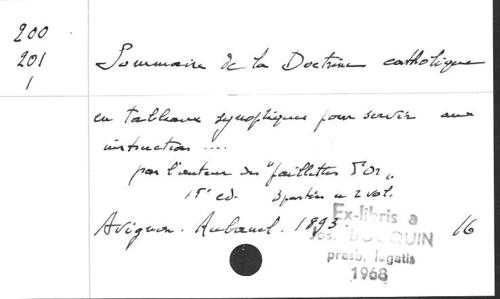 200
201
1
Sommaire de la Doctrine catholique
en tableaux synoptiques pour servir aux
instructions ....
par l'auteur des "paillettes d'or"
15e ed. 3 parties en 2 vol.
Avignon. Aubanel. 1893.
16
Ex-libris a
Jos. BOCQUIN
presb. legatis
1968